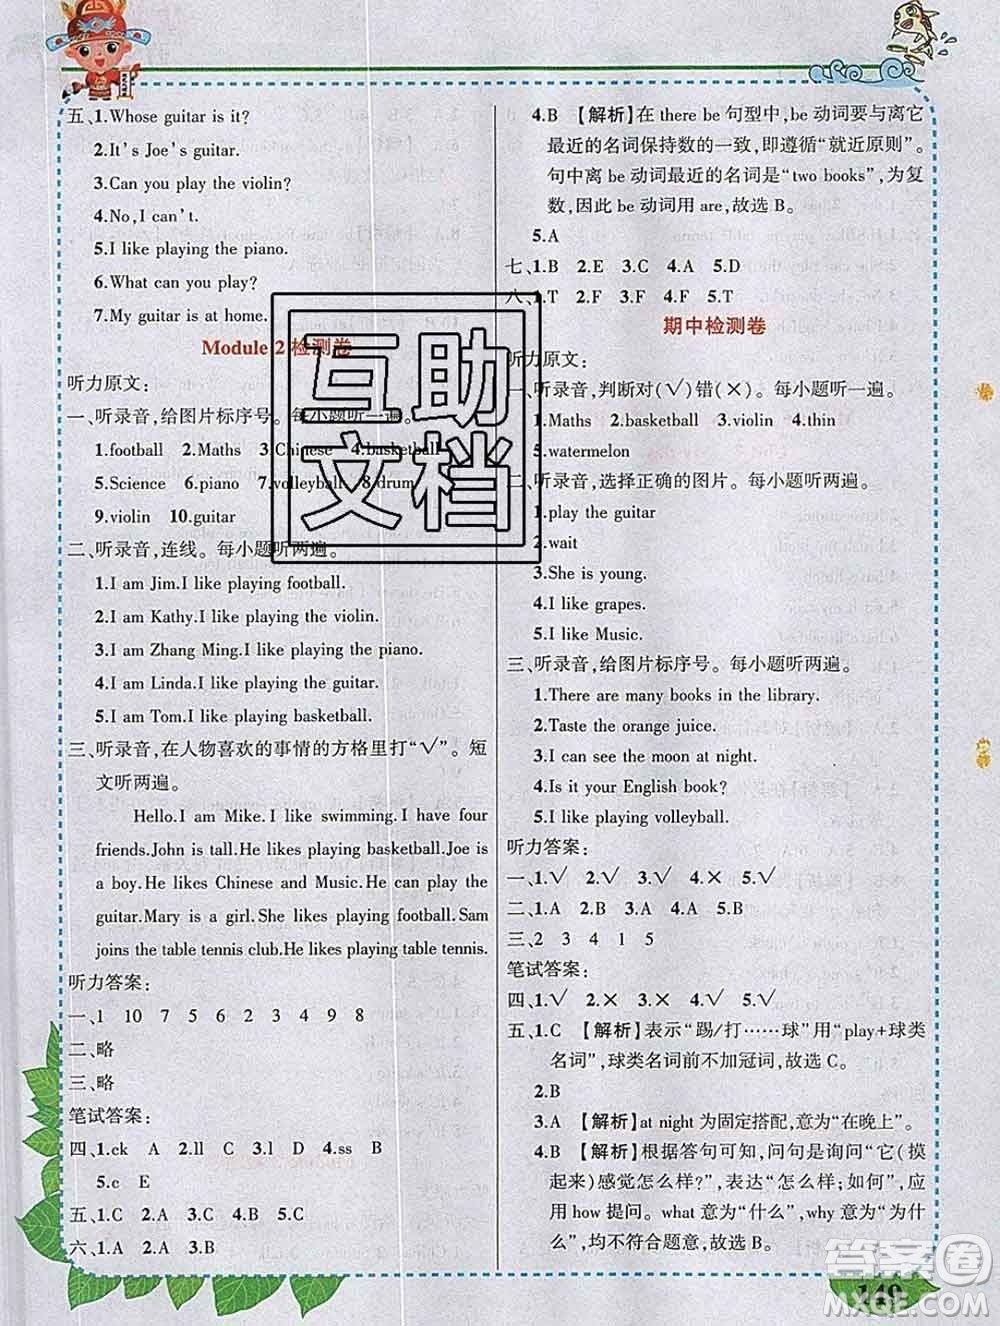 五、1.Whose guitar is it?
2.It's Joe's guitar.
3.Can you play the violin?
4.No,I can't.
5.I like playing the piano.
6.What can you play?
7.My guitar is at home.
Module 2检测卷
听力原文:
一、听录音,给图片标序号。每小题听一遍。
1.football 2.Maths 3.Chinese 4.basketball
5.Science 6.piano 7.volleyball 8.drum
9.violin 10.guitar
二、听录音,连线。每小题听两遍。
1.I am Jim.I like playing football.
2.I am Kathy.I like playing the violin.
3.I am Zhang Ming.I like playing the piano.
4.I am Linda.I like playing the guitar.
5.I am Tom.I like playing basketball.
三、听录音,在人物喜欢的事情的方格里打“✓”。短
文听两遍。
Hello.I am Mike.I like swimming.I have four
friends.John is tall.He likes playing basketball.Joe is
a boy.He likes Chinese and Music.He can play the
guitar.Mary is a girl.She likes playing football.Sam
joins the table tennis club.He likes playing table tennis.
听力答案:
一、1 10 7 5 6 2 3 4 9 8
二、略
三、略
笔试答案:
四、1.ck A 2.ll C 3.ll D 4.ss B
5.c E
五、1.C 2.A 3.C 4.B 5.C
六、1.A 2.A 3.B
4.B 【解析】在 there be 句型中,be 动词要与离它
最近的名词保持数的一致,即遵循“就近原则”。
句中离 be 动词最近的名词是“two books”,为复
数,因此 be 动词用 are,故选 B。
5.A
七、1.B 2.E 3.C 4.A 5.D
八、1.T 2.F 3.F 4.F 5.T
期中检测卷
听力原文:
一、听录音,判断对(✓)错(×)。每小题听一遍。
1.Maths 2.basketball 3.violin 4.thin
5.watermelon
二、听录音,选择正确的图片。每小题听两遍。
1.play the guitar
2.wait
3.She is young.
4.I like grapes.
5.I like Music.
三、听录音,给图片标序号。每小题听两遍。
1.There are many books in the library.
2.Taste the orange juice.
3.I can see the moon at night.
4.Is it your English book?
5.I like playing volleyball.
听力答案:
一、1.✓ 2.✓ 3.✓ 4.× 5.✓
二、1.A 2.B 3.A 4.A 5.B
三、2 3 4 1 5
笔试答案:
四、1.✓ 2.× 3.✓ 4.× 5.✓
五、1.C 【解析】表示“踢/打……球”用“play+球类
名词”,球类名词前不加冠词,故选 C。
2.B
3.A 【解析】at night 为固定搭配,意为“在晚上”。
4.B 【解析】根据答句可知,问句是询问“它(摸
起来)感觉怎么样?”,表达“怎么样;如何”,应
用 how 提问。what 意为“什么”,why 意为“为什
么”,均不符合题意,故选 B。
149
互助
文档
答案圈
MXQE.COM